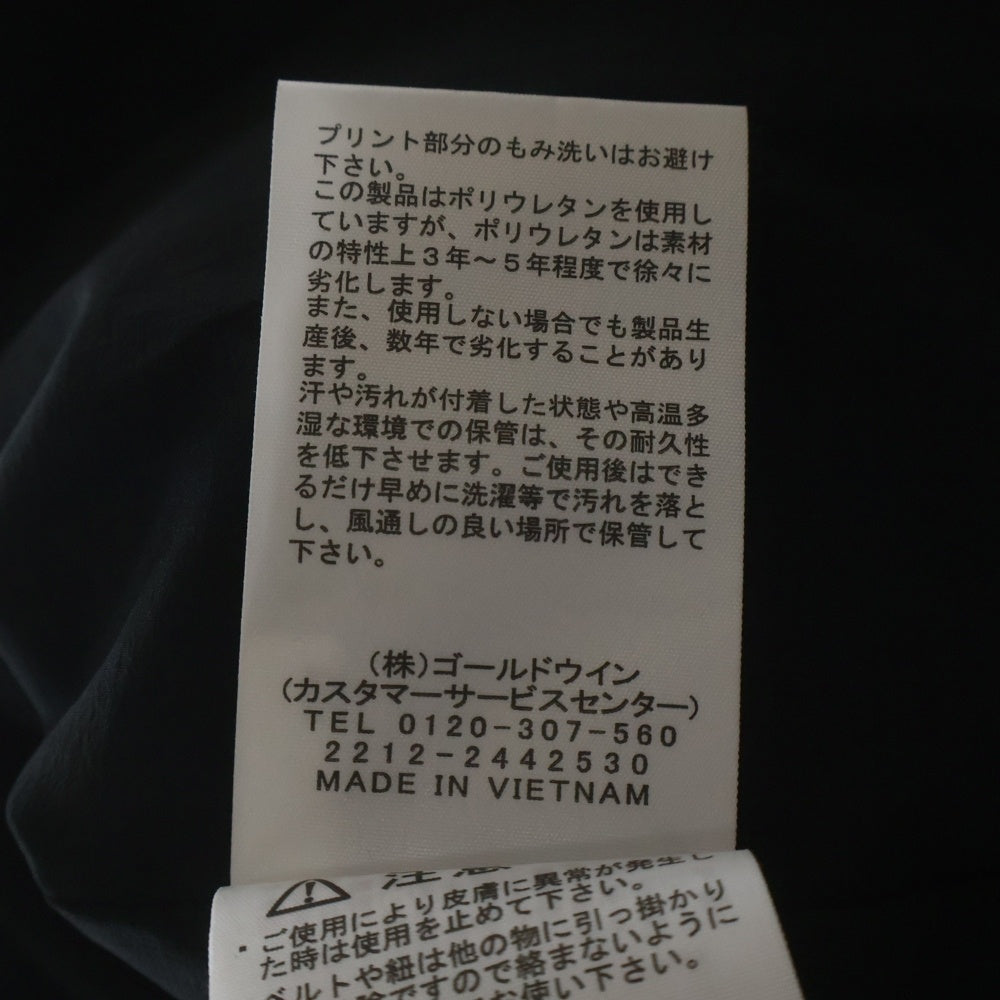 プリント部分のもみ洗いはお避け
下さい。
この製品はポリウレタンを使用し
ていますが、ポリウレタンは素材
の特性上３年～５年程度で徐々に
劣化します。
また、使用しない場合でも製品生
産後、数年で劣化することがあり
ます。
汗や汚れが付着した状態や高温多
湿な環境での保管は、その耐久性
を低下させます。ご使用後はでき
るだけ早めに洗濯等で汚れを落と
し、風通しの良い場所で保管して
下さい。
(株)ゴールドウイン
(カスタマーサービスセンター)
TEL 0120-307-560
2212-2442530
MADE IN VIETNAM
注意
・ご使用により皮膚に異常が発生し
た時は使用を止めて下さい。
ベルトや紐は他の物に引っ掛かり
ですので絡まないように
お使い下さい。